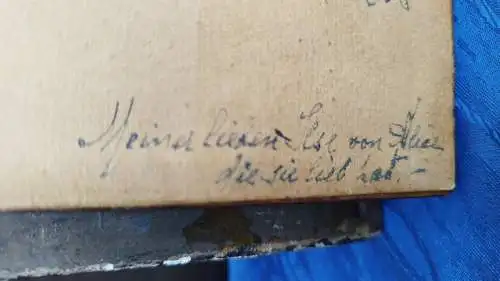 Meiner lieben Else von Alice
die sie lieb hat. –